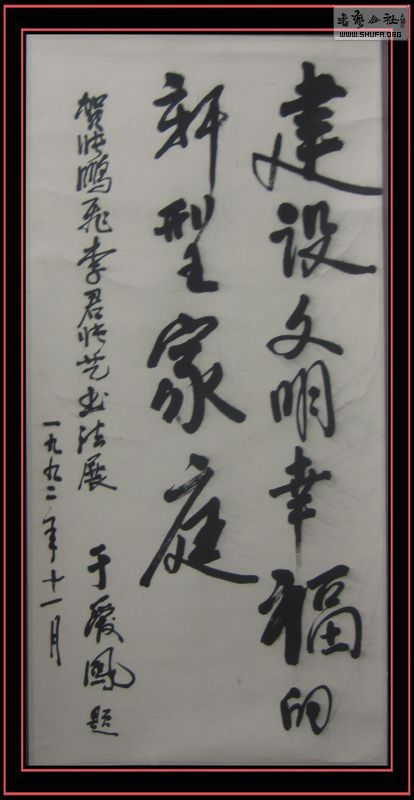 建设文明幸福的
新型家庭
贺张鹏飞李君张艺书法展
一九九二年十一月
于爱凤题
书艺公社
WWW.SHUFA.ORG